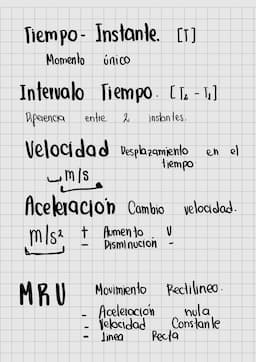 Tiempo - Instante. [T]
Momento único
Intervalo Tiempo. [T₂ - T₁]
Diferencia entre 2 instantes.
Velocidad Desplazamiento en el
tiempo
m/s
Aceleración Cambio velocidad.
m/s² + Aumento v
- Disminucion -
MRU Movimiento Rectilineo.
- Aceleración nula
- Velocidad Constante
- Linea Recta